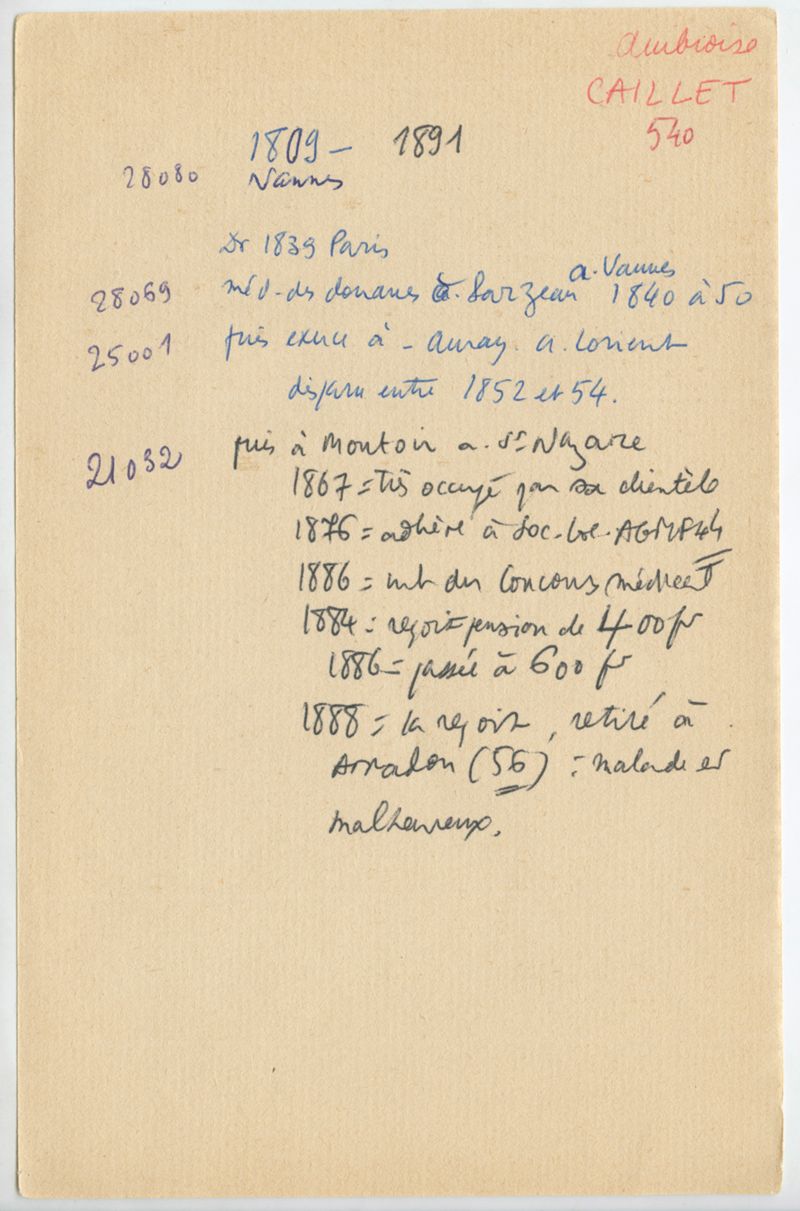 Ambroise
CAILLET
540
1809 - 1891
28080 Vannes
Dr 1839 Paris
a. Vannes
28069 méd. des douanes à Sarzeau 1840 à 50
25001 puis exerce à - Auray. a. Lorient
disparu entre 1852 et 54.
21032 puis à Montoir a. St Nazaire
1867 = très occupé par sa clientèle
1876 = adhère à Soc. loc. AGMF44
1886 = mb du Concours médical
1884 = reçoit pension de 400 fr
1886 = passée à 600 fr
1888 = la reçoit, retiré à
Arradon (56) : malade et
malheureux.